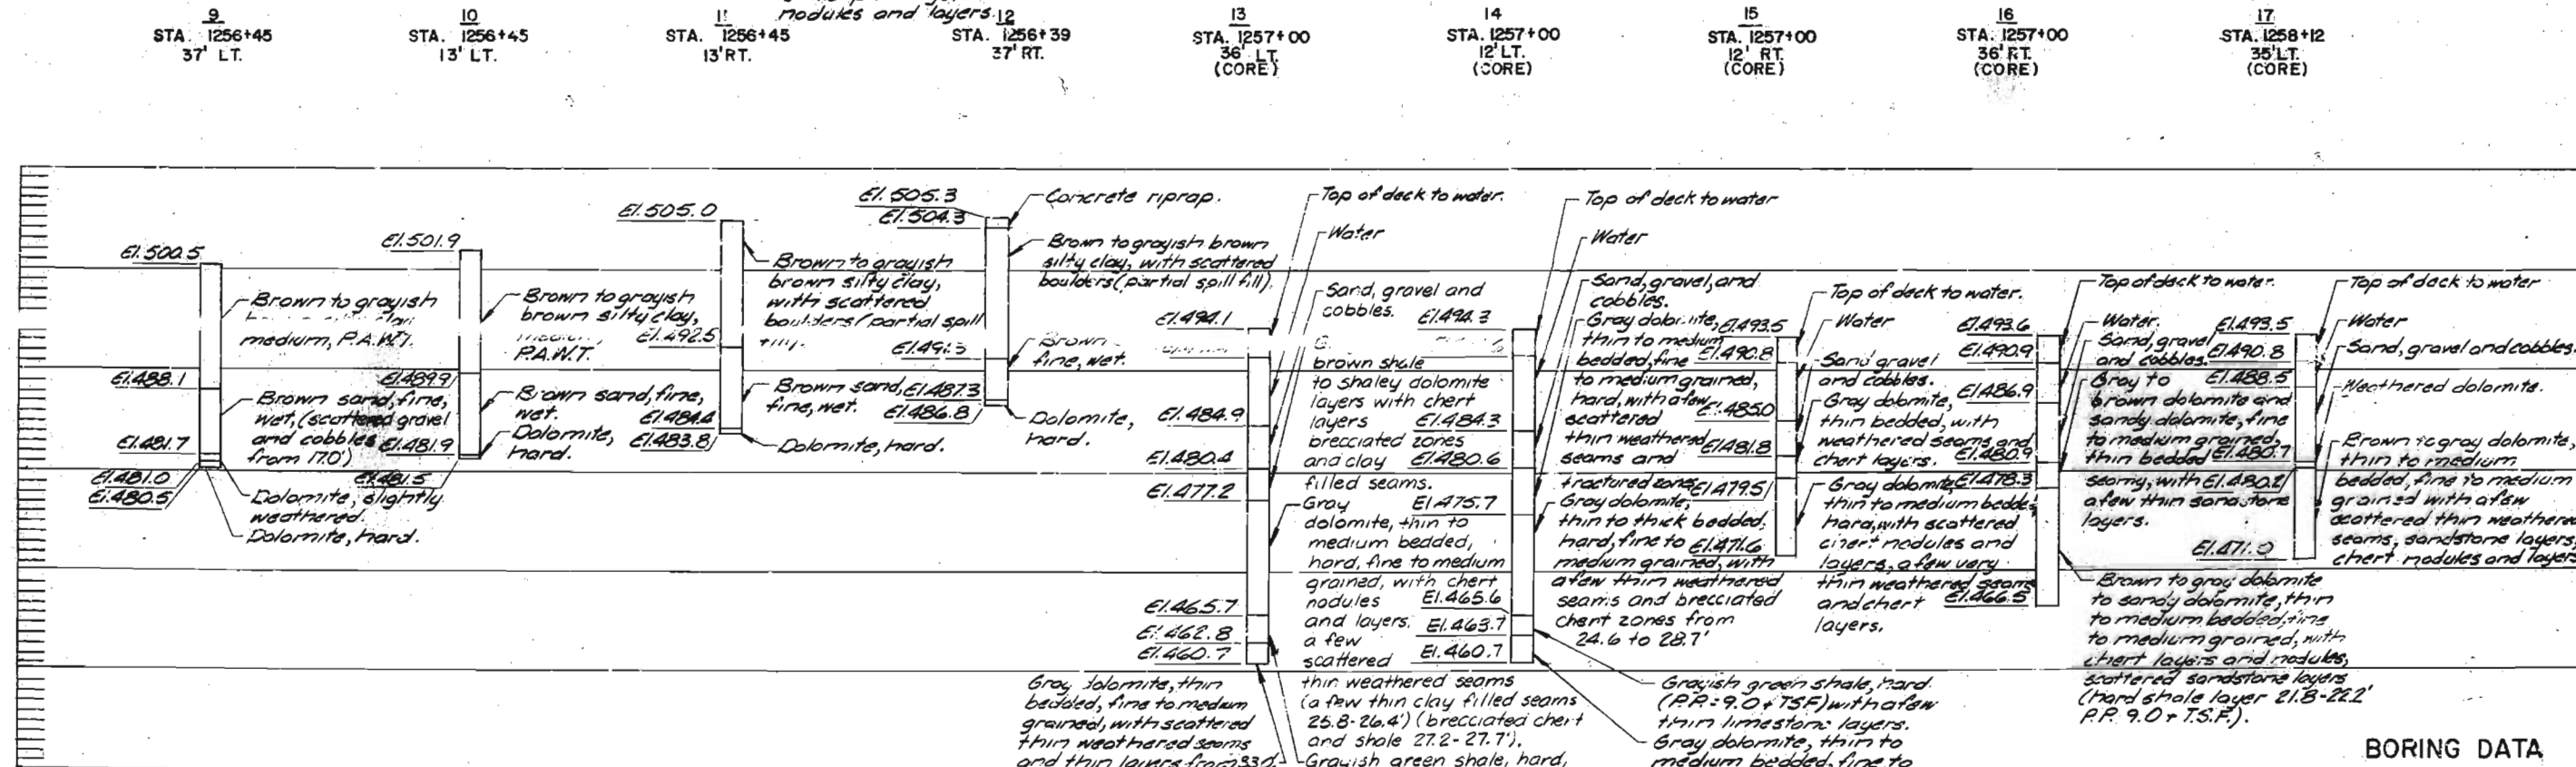 nodules and layers.
9
STA. 1256+45
37' LT.
10
STA. 1256+45
13' LT.
11
STA. 1256+45
13' RT.
12
STA. 1256+39
37' RT.
13
STA. 1257+00
36' LT.
(CORE)
14
STA. 1257+00
12' LT.
(CORE)
15
STA. 1257+00
12' RT.
(CORE)
16
STA. 1257+00
36' RT.
(CORE)
17
STA. 1258+12
35' LT.
(CORE)
El. 500.5
Brown to grayish
medium, P.A.W.T.
El. 488.1
Brown sand, fine,
wet, (scattered gravel
and cobbles
from 17.0')
El. 481.7
El. 481.0
El. 480.5
Dolomite, slightly
weathered.
Dolomite, hard.
El. 501.9
Brown to grayish
brown silty clay,
P.A.W.T.
El. 489.9
Brown sand, fine,
wet.
El. 481.9
Dolomite,
hard.
El. 481.5
El. 505.0
Brown to grayish
brown silty clay,
with scattered
boulders (partial spill
El. 492.5
Brown sand,
fine, wet.
El. 484.4
El. 483.8
Dolomite, hard.
El. 505.3
El. 504.3
Concrete riprap.
Brown to grayish brown
silty clay, with scattered
boulders (partial spill fill).
El. 491.3
Brown
fine, wet.
El. 487.3
El. 486.8
Dolomite,
hard.
Top of deck to water.
Water
Sand, gravel and
cobbles.
El. 494.1
brown shale
to shaley dolomite
layers with chert
layers
brecciated zones
and clay
filled seams.
El. 484.9
El. 480.4
El. 477.2
Gray
dolomite, thin to
medium bedded,
hard, fine to medium
grained, with chert
nodules
and layers,
a few
scattered
thin weathered seams
(a few thin clay filled seams
25.8-26.4') (brecciated chert
and shale 27.2-27.7').
El. 465.7
El. 462.8
El. 460.7
Grayish green shale, hard,
Gray dolomite, thin
bedded, fine to medium
grained, with scattered
thin weathered seams
and thin layers from 33.0'
Top of deck to water
Water
El. 494.3
Sand, gravel, and
cobbles.
Gray dolomite,
thin to medium
bedded, fine
to medium grained,
hard, with a few
scattered
thin weathered
seams and
fractured zones
El. 484.3
El. 480.6
El. 475.7
Gray dolomite,
thin to thick bedded,
hard, fine to
medium grained, with
a few thin weathered
seams and brecciated
chert zones from
24.6 to 28.7'
El. 465.6
El. 463.7
El. 460.7
Grayish green shale, hard.
(P.P.=9.0+TSF) with a few
thin limestone layers.
Gray dolomite, thin to
medium bedded, fine to
El. 493.5
Top of deck to water.
Water
El. 490.8
Sand gravel
and cobbles.
El. 485.0
Gray dolomite,
thin bedded, with
weathered seams and
chert layers.
El. 481.8
El. 479.5
Gray dolomite,
thin to medium bedded,
hard, with scattered
chert nodules and
layers, a few very
thin weathered seams
and chert
layers.
El. 471.6
Top of deck to water.
El. 493.6
Water.
El. 490.9
Sand, gravel
and cobbles.
El. 486.9
Gray to
brown dolomite and
sandy dolomite, fine
to medium grained,
thin bedded
seamy, with
a few thin sandstone
layers.
El. 480.9
El. 478.3
El. 466.5
Brown to gray dolomite
to sandy dolomite, thin
to medium bedded, fine
to medium grained, with
chert layers and nodules,
scattered sandstone layers
(hard shale layer 21.8-22.2'
P.P. 9.0+ T.S.F.).
Top of deck to water
El. 493.5
Water
El. 490.8
Sand, gravel and cobbles.
El. 488.5
Weathered dolomite.
El. 480.7
El. 480.2
Brown to gray dolomite,
thin to medium
bedded, fine to medium
grained with a few
scattered thin weathered
seams, sandstone layers,
chert nodules and layers
El. 471.0
BORING DATA